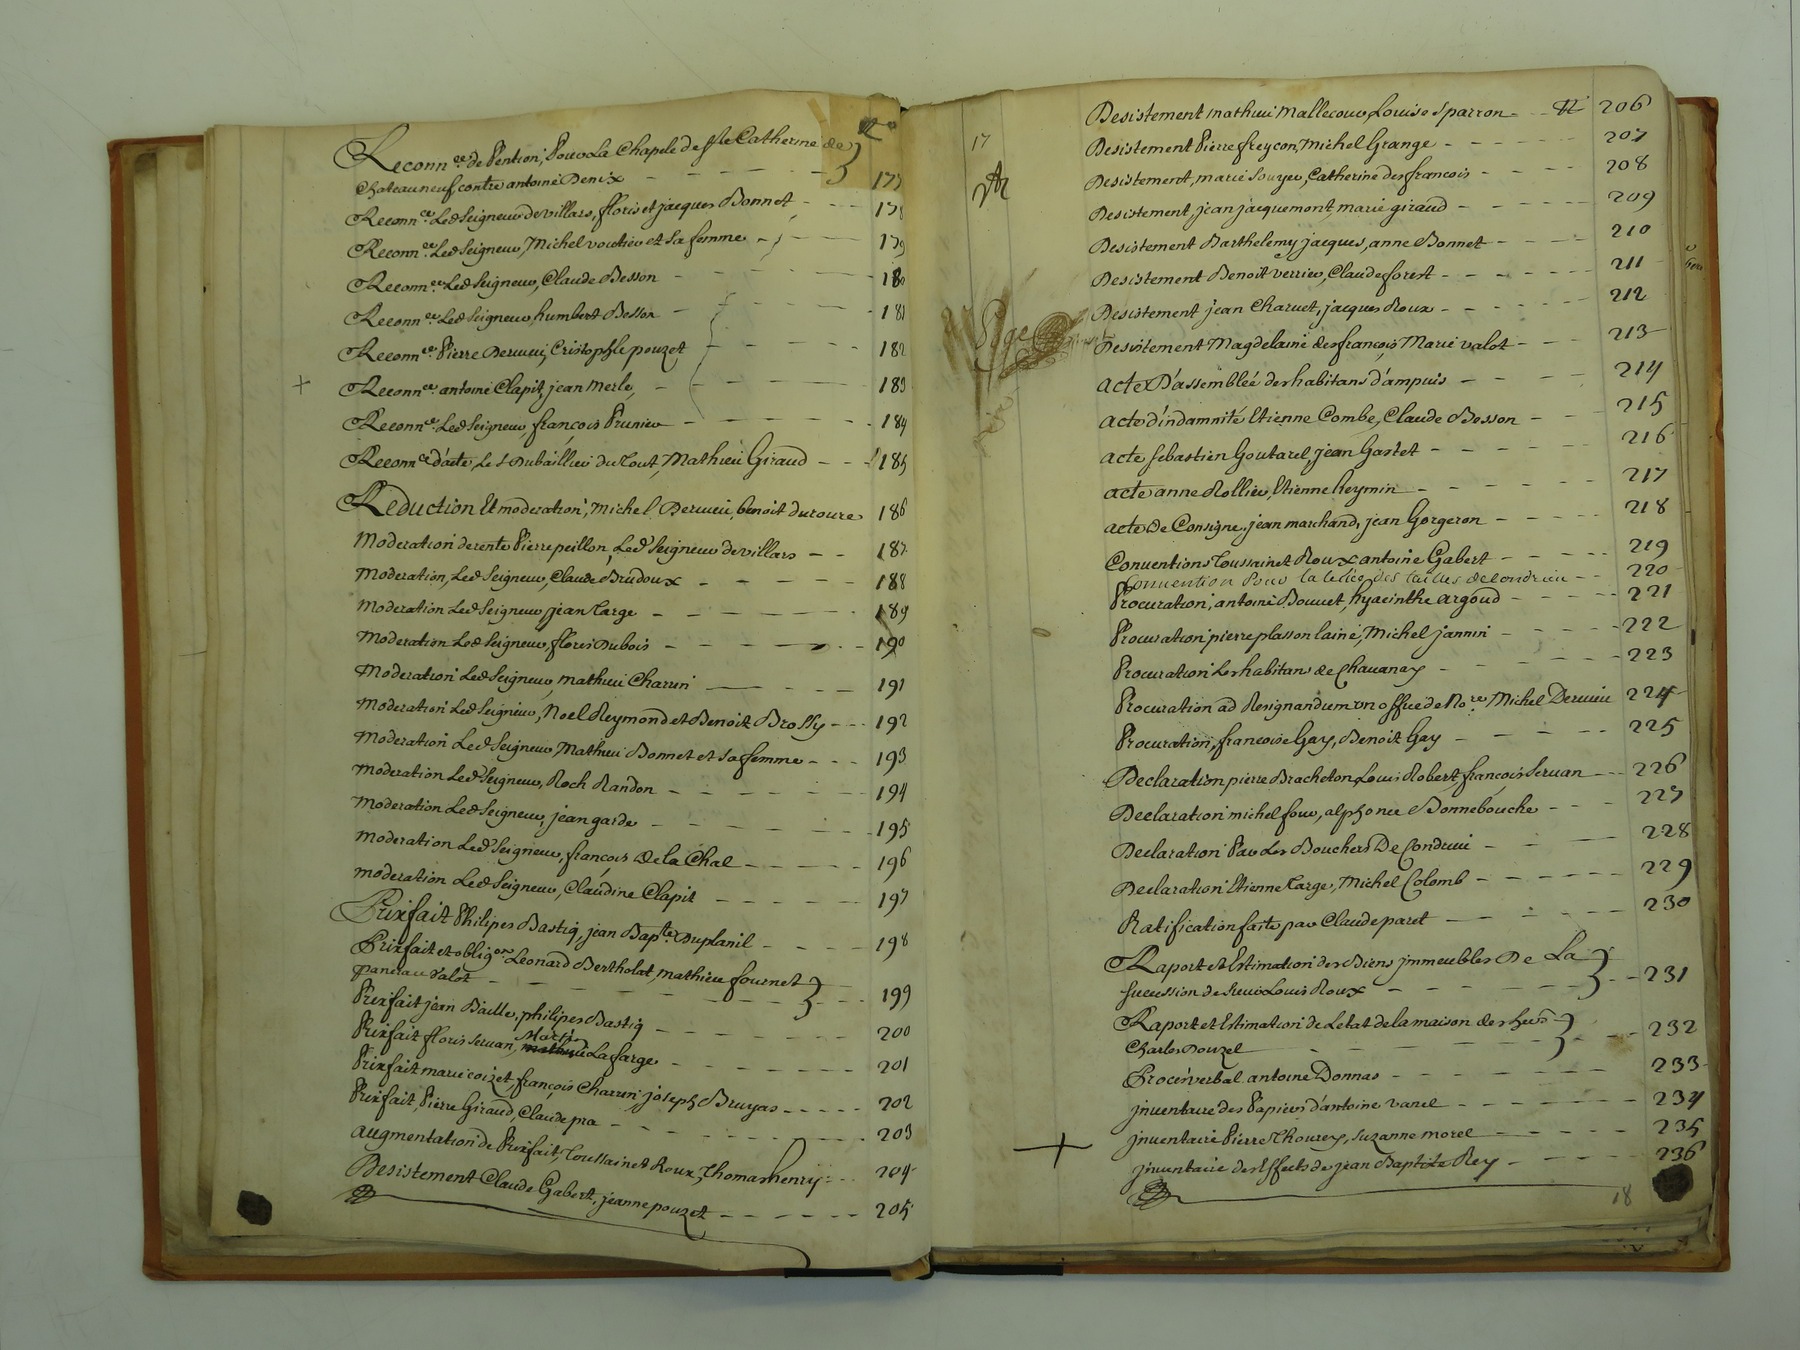 N.º
Reconn.ce de Pention, Pour La Chapele de Ste Catherine de
Chateauneuf contre antoine Denix 177
Reconn.ce Led Seigneur de villars, floris et jacques Bonnet 178
Reconn.ce Led Seigneur, Michel voutier et Sa femme 179
Reconn.ce Led Seigneur, Claude Besson 180
Reconn.ce Led Seigneur, humbert Besson 181
Reconn.ce Pierre Dervieu, Cristophle pouzet 182
Reconn.ce antoine Clapit, jean Merle 183
Reconn.ce Led Seigneur, françois Prunier 184
Reconn.ce d'acte, Le S. Dubaillier du Tout, Mathieu Giraud 185
Reduction Et moderation, Michel Dervieu, benoit duroure 186
Moderation de rente Pierre peillon, Led Seigneur de villars 187
Moderation, Led Seigneur, Claude Brudoux 188
Moderation Led Seigneur, jean Targe 189
Moderation Led Seigneur, floris Dubois 190
Moderation Led Seigneur, mathieu Charrin 191
Moderation Led Seigneur, Noel Reymond et Benoit Brossy 192
Moderation Led Seigneur, Mathieu Bonnet et Sa femme 193
Moderation Led Seigneur, Roch Randon 194
Moderation Led Seigneur, jean garde 195
Moderation Led Seigneur, françois De la Chal 196
moderation Led Seigneur, Claudine Clapit 197
Prixfait Philipes Bastig, jean Bap.te Duplanil 198
Prixfait et oblig.on Leonard Bertholat, mathieu fournet
valot 199
Prixfait jean Baille, philipes Bastig 200
Prixfait floris Servan, Martin Lafarge 201
Prixfait marie coizet, françois Charrin joseph Bruyas 202
Prixfait, Pierre Giraud, Claude pra 203
augmentation de Prixfait, Toussainct Roux, Thomas henry 204
Desistement Claude Gabert, jeanne pouzet 205
17
Desistement mathieu Mallecour, Louise Sparron N.º 206
Desistement Pierre freycon, Michel Grange 207
Desistement, marie Souyer, Catherine des francois 208
Desistement, jean jacquemont, marie giraud 209
Desistement Barthelemy jacques, anne Bonnet 210
Desistement Benoit verrier, Claude forest 211
Desistement jean Charvet, jacques Roux 212
Desistement Magdelaine des françois, Marie valot 213
Acte D'assemblée des habitans d'ampuis 214
Acte d'indamnité Etienne Combe, Claude Besson 215
Acte Sebastien Goutarel, jean Gastet 216
acte anne Rollier, Etienne Reymin 217
acte De Consigne, jean marchand, jean Gorgeron 218
Conventions Toussainct Roux antoine Gabert 219
Convention Pour la levée des tailles de condrieu 220
Procuration, antoine Bouvet, hyacinthe argoud 221
Procuration pierre plasson lainé, Michel jannin 222
Procuration Les habitans de Chavanay 223
Procuration ad Resignandum un office de No.re Michel Dervieu 224
Procuration, francoise Gay, Benoit Gay 225
Declaration pierre Bracheton, Louis Robert, françois Servan 226
Declaration michel four, alphonse Bonnebouche 227
Declaration Par Les Bouchers De Condrieu 228
Declaration Etienne Targe, Michel Colomb 229
Ratification faite par Claude paret 230
Raport et Estimation des Biens jmmeubles De La
Succession de Sieur Louis Roux 231
Raport et Estimation de Letat de la maison des hers
Charles Douzel 232
Procés verbal antoine Donnas 233
jnventaire des Papiers d'antoine vanel 234
jnventaire Pierre Thourey, Suzanne morel 235
jnventaire des Effects de jean Baptiste Rey 236
18